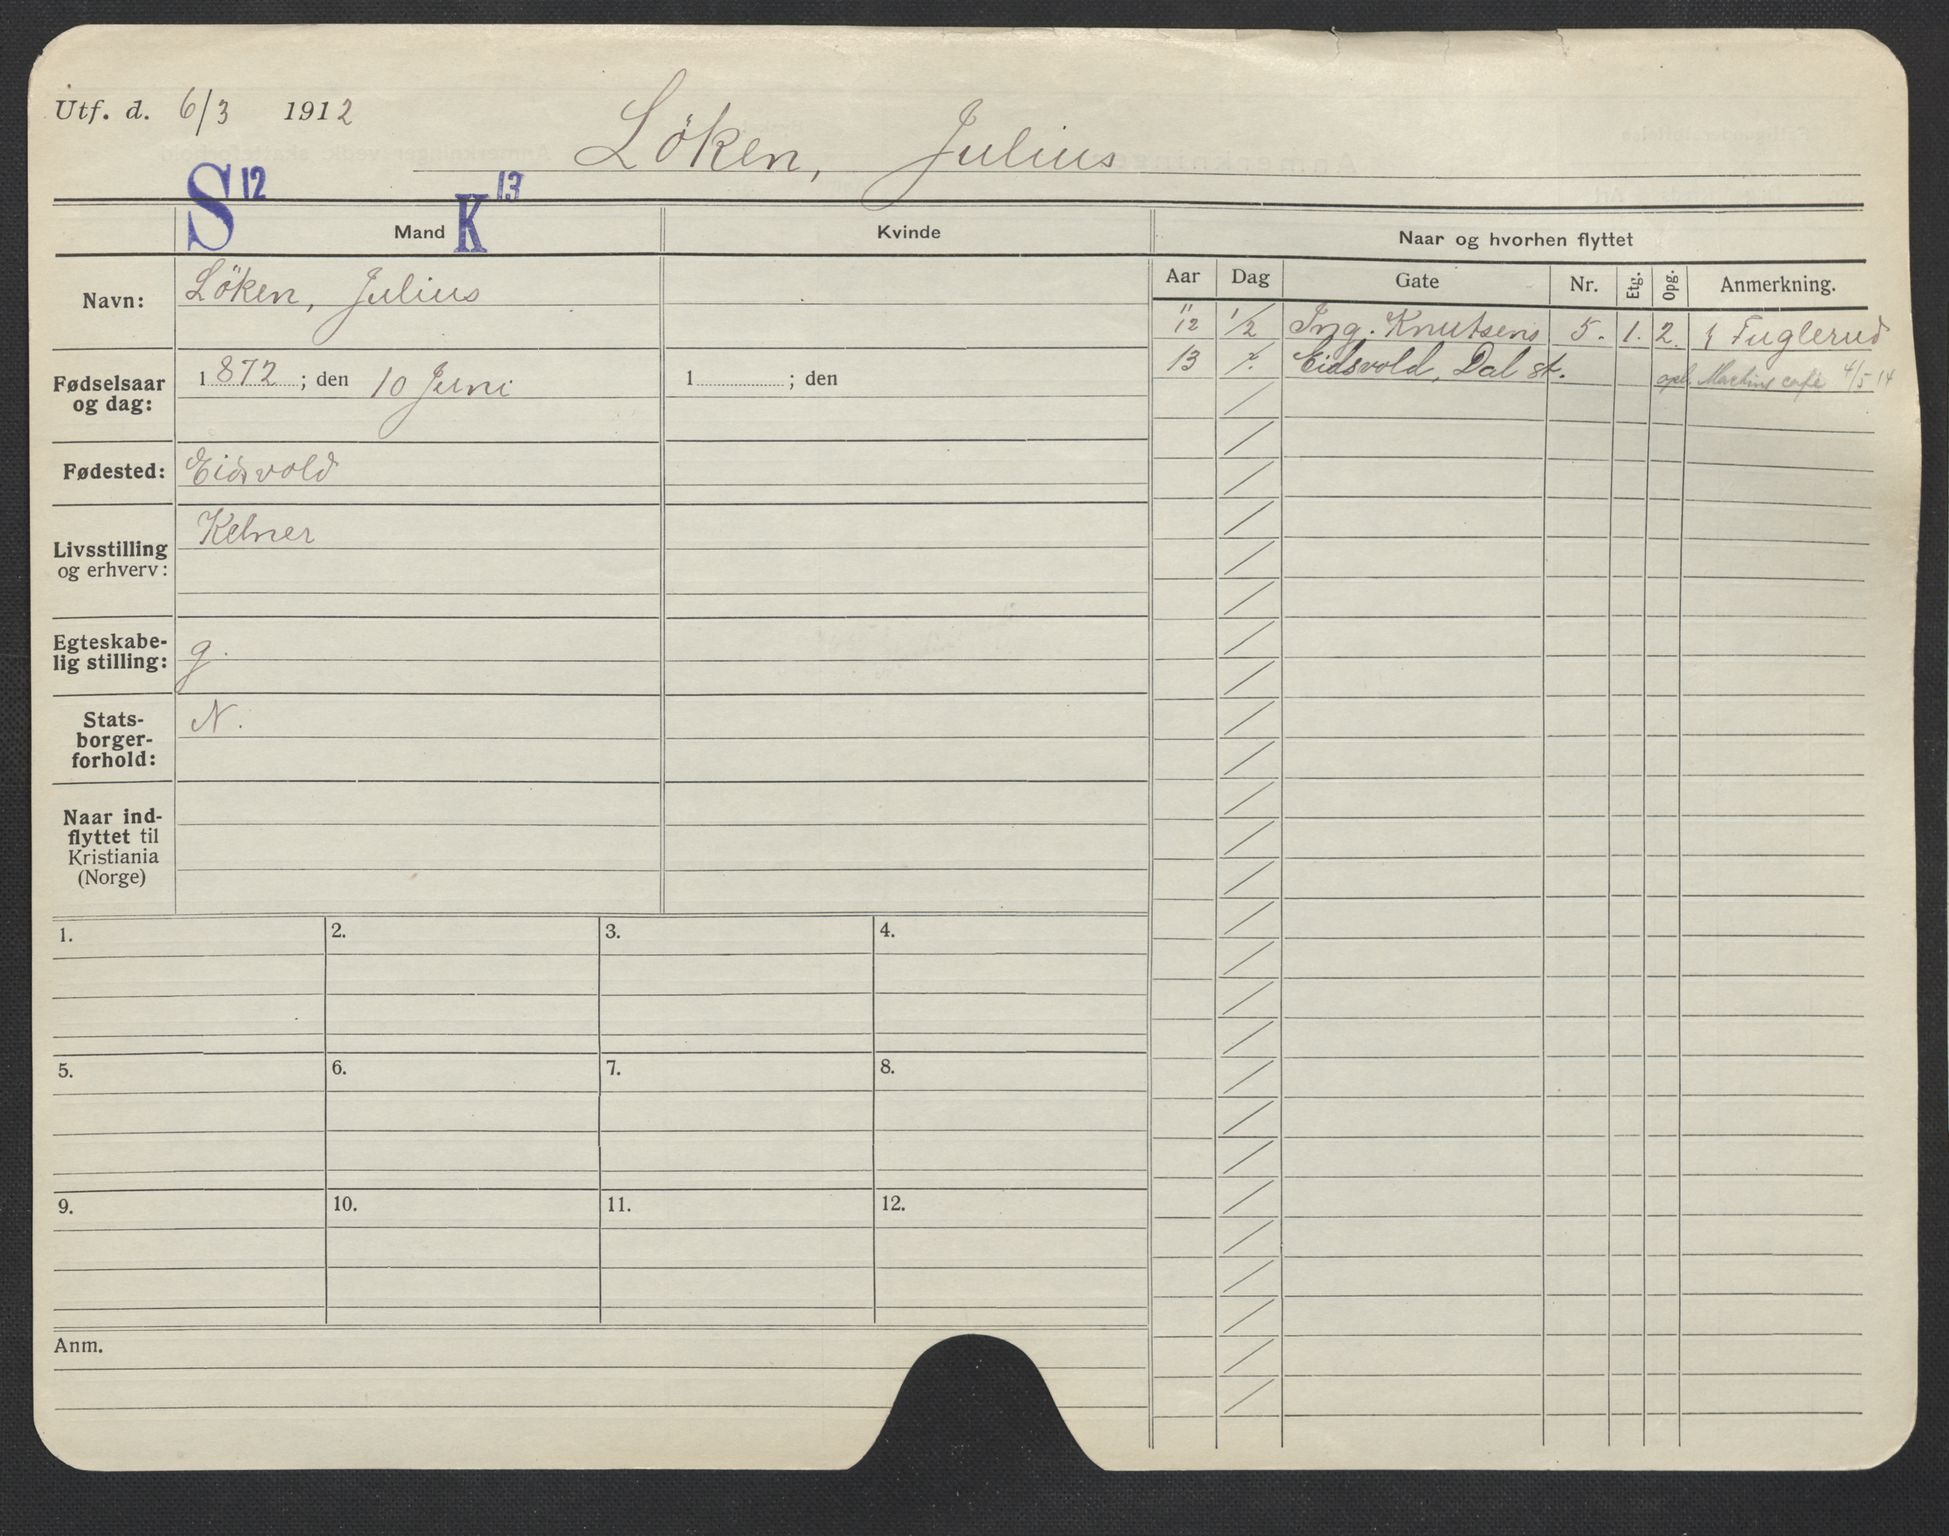 Utf. d. 6/3 1912
Löken, Julius
S 12 K 13
Mand Kvinde Naar og hvorhen flyttet
Aar Dag Gate Nr. Etg. Opg. Anmerkning.
Navn: Löken, Julius
" 12 1/2 Ing. Knutsens 5. 1. 2. Fuglerud
13 Eidsvold, Dal st. opl. café 4/5 14
Fødselsaar og dag: 1872; den 10 Juni 1 ; den
Fødested: Eidsvold
Livsstilling og erhverv: Kelner
Egteskabe-
lig stilling: g.
Stats-
borger-
forhold: N.
Naar ind-
flyttet til
Kristiania
(Norge)
1. 2. 3. 4.
5. 6. 7. 8.
9. 10. 11. 12.
Anm.